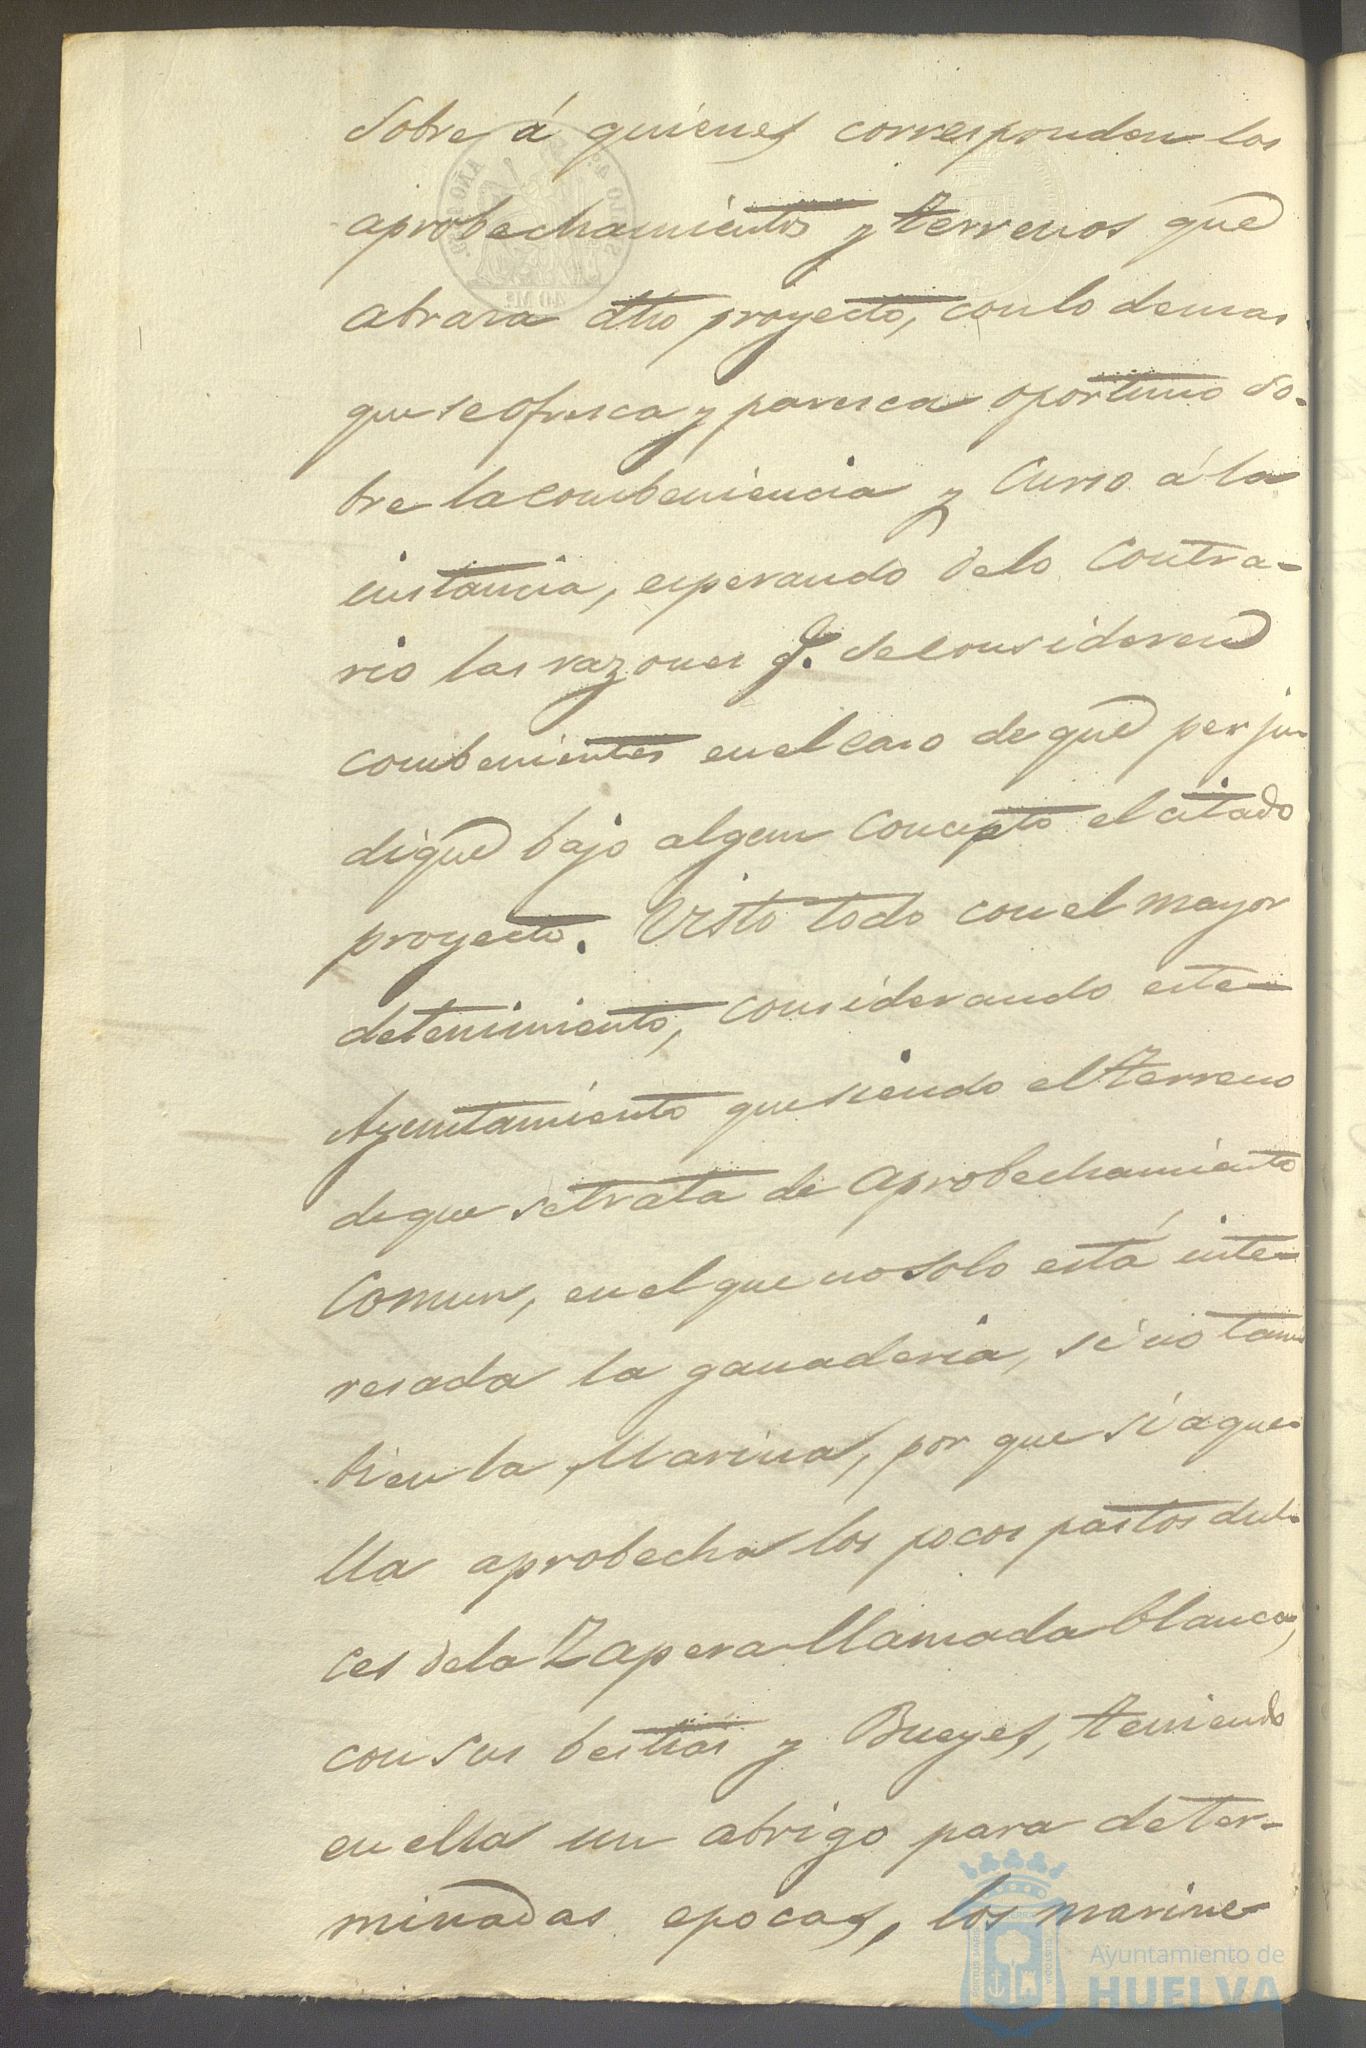 Sobre á quienes corresponden los
aprobechamientos y terrenos que
abrasa dho proyecto, con lo demas
que se ofresca y paresca oportuno so-
bre la combeniencia y Curso á la
instancia, esperando de lo Contra-
rio las razones q. se consideren
combenientes en el caso de que perju-
dique bajo algun Concepto el citado
proyecto. Visto todo con el mayor
detenimiento, considerando este
Ayuntamiento que siendo el terreno
de que se trata de aprobechamiento
Comun, en el que no solo está inte-
resada la ganaderia, sino tam
bien la Marina, por que si aque-
lla aprobecha los pocos pastos dul-
ces de la Zapera llamada blanca,
con sus bestias y Bueyes, teniendo
en ella un abrigo para deter-
minadas epocas, los marine-
Ayuntamiento de
HUELVA